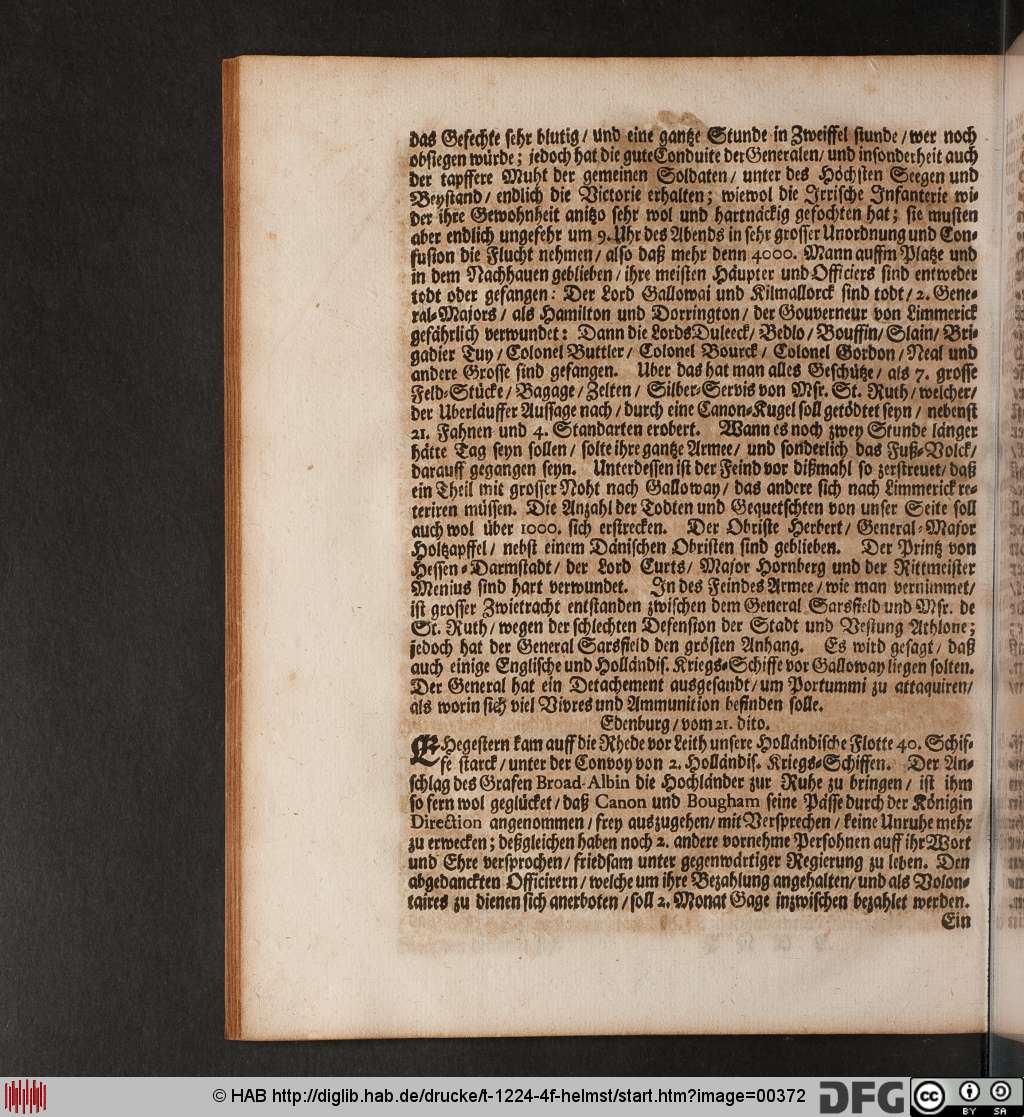 das Gefechte sehr blutig / und eine gantze Stunde in Zweiffel stunde / wer noch
obsiegen würde; jedoch hat die gute Conduite der Generalen / und insonderheit auch
der tapffere Muht der gemeinen Soldaten / unter des Höchsten Seegen und
Beystand / endlich die Victorie erhalten; wiewol die Irrische Infanterie wi-
der ihre Gewohnheit anitzo sehr wol und hartnäckig gefochten hat; sie musten
aber endlich ungefehr um 9. Uhr des Abends in sehr grosser Unordnung und Con-
fusion die Flucht nehmen / also daß mehr denn 4000. Mann auffm Platze und
in dem Nachhauen geblieben / ihre meisten Häupter und Officiers sind entweder
todt oder gefangen: Der Lord Gallowai und Kilmallorck sind todt / 2. Gene-
ral-Majors / als Hamilton und Dorrington / der Gouverneur von Limmerick
gefährlich verwundet: Dann die Lords Duleeck / Bedlo / Bouffin / Slain / Bri-
gadier Tuy / Colonel Buttler / Colonel Bourck / Colonel Gordon / Neal und
andere Grosse sind gefangen. Uber das hat man alles Geschütze / als 7. grosse
Feld-Stücke / Bagage / Zelten / Silber-Servis von Msr. St. Ruth / welcher /
der Uberläuffer Aussage nach / durch eine Canon-Kugel soll getödtet seyn / nebenst
21. Fahnen und 4. Standarten erobert. Wann es noch zwey Stunde länger
hätte Tag seyn sollen / solte ihre gantze Armee / und sonderlich das Fuß-Volck /
darauff gegangen seyn. Unterdessen ist der Feind vor dißmahl so zerstreuet / daß
ein Theil mit grosser Noht nach Galloway / das andere sich nach Limmerick re-
teriren müssen. Die Anzahl der Todten und Gequetschten von unser Seite soll
auch wol über 1000. sich erstrecken. Der Obriste Herbert / General-Major
Holtzapffel / nebst einem Dänischen Obristen sind geblieben. Der Printz von
Hessen-Darmstadt / der Lord Curts / Major Hornberg und der Rittmeister
Menius sind hart verwundet. In des Feindes Armee / wie man vernimmet /
ist grosser Zwietracht entstanden zwischen dem General Sarsfield und Msr. de
St. Ruth / wegen der schlechten Defension der Stadt und Vestung Athlone;
jedoch hat der General Sarsfield den grösten Anhang. Es wird gesagt / daß
auch einige Englische und Holländis. Kriegs-Schiffe vor Galloway liegen solten.
Der General hat ein Detachement ausgesandt / um Portummi zu attaquiren /
als worin sich viel Vivres und Ammunition befinden solle.
Edenburg / vom 21. dito.
EHegestern kam auff die Rhede vor Leith unsere Holländische Flotte 40. Schif-
fe starck / unter der Convoy von 2. Holländis. Kriegs-Schiffen. Der An-
schlag des Grafen Broad-Albin die Hochländer zur Ruhe zu bringen / ist ihm
so fern wol geglücket / daß Canon und Bougham seine Pässe durch der Königin
Direction angenommen / frey auszugehen / mit Versprechen / keine Unruhe mehr
zu erwecken; deßgleichen haben noch 2. andere vornehme Persohnen auff ihr Wort
und Ehre versprochen / friedsam unter gegenwärtiger Regierung zu leben. Den
abgedanckten Officirern / welche um ihre Bezahlung angehalten / und als Volon-
taires zu dienen sich anerboten / soll 2. Monat Gage inzwischen bezahlet werden.
Ein
© HAB http://diglib.hab.de/drucke/t-1224-4f-helmst/start.htm?image=00372
DFG
cc
BY SA